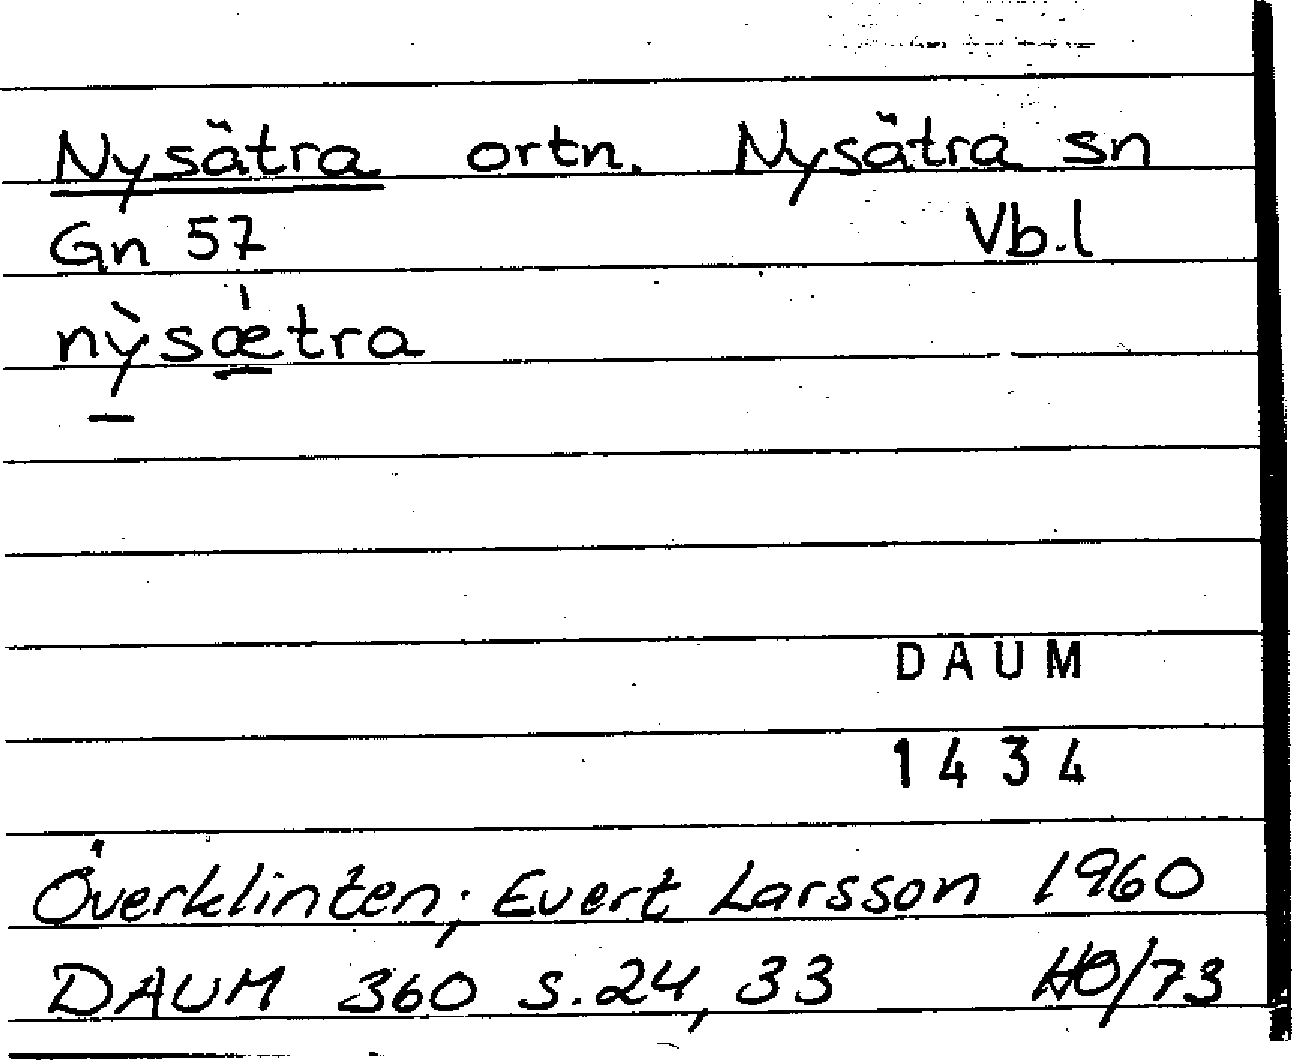 Nysätra ortn. Nysätra sn
Gn 57 Vb.l
nỳsǽtra
DAUM
1434
Överklinten; Evert Larsson 1960
DAUM 360 s.24, 33 HO/73